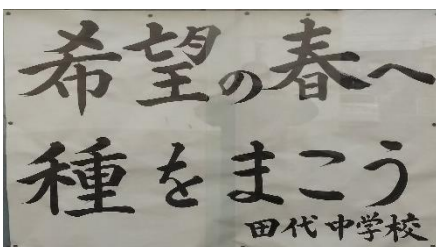 希望の春へ
種をまこう
田代中学校